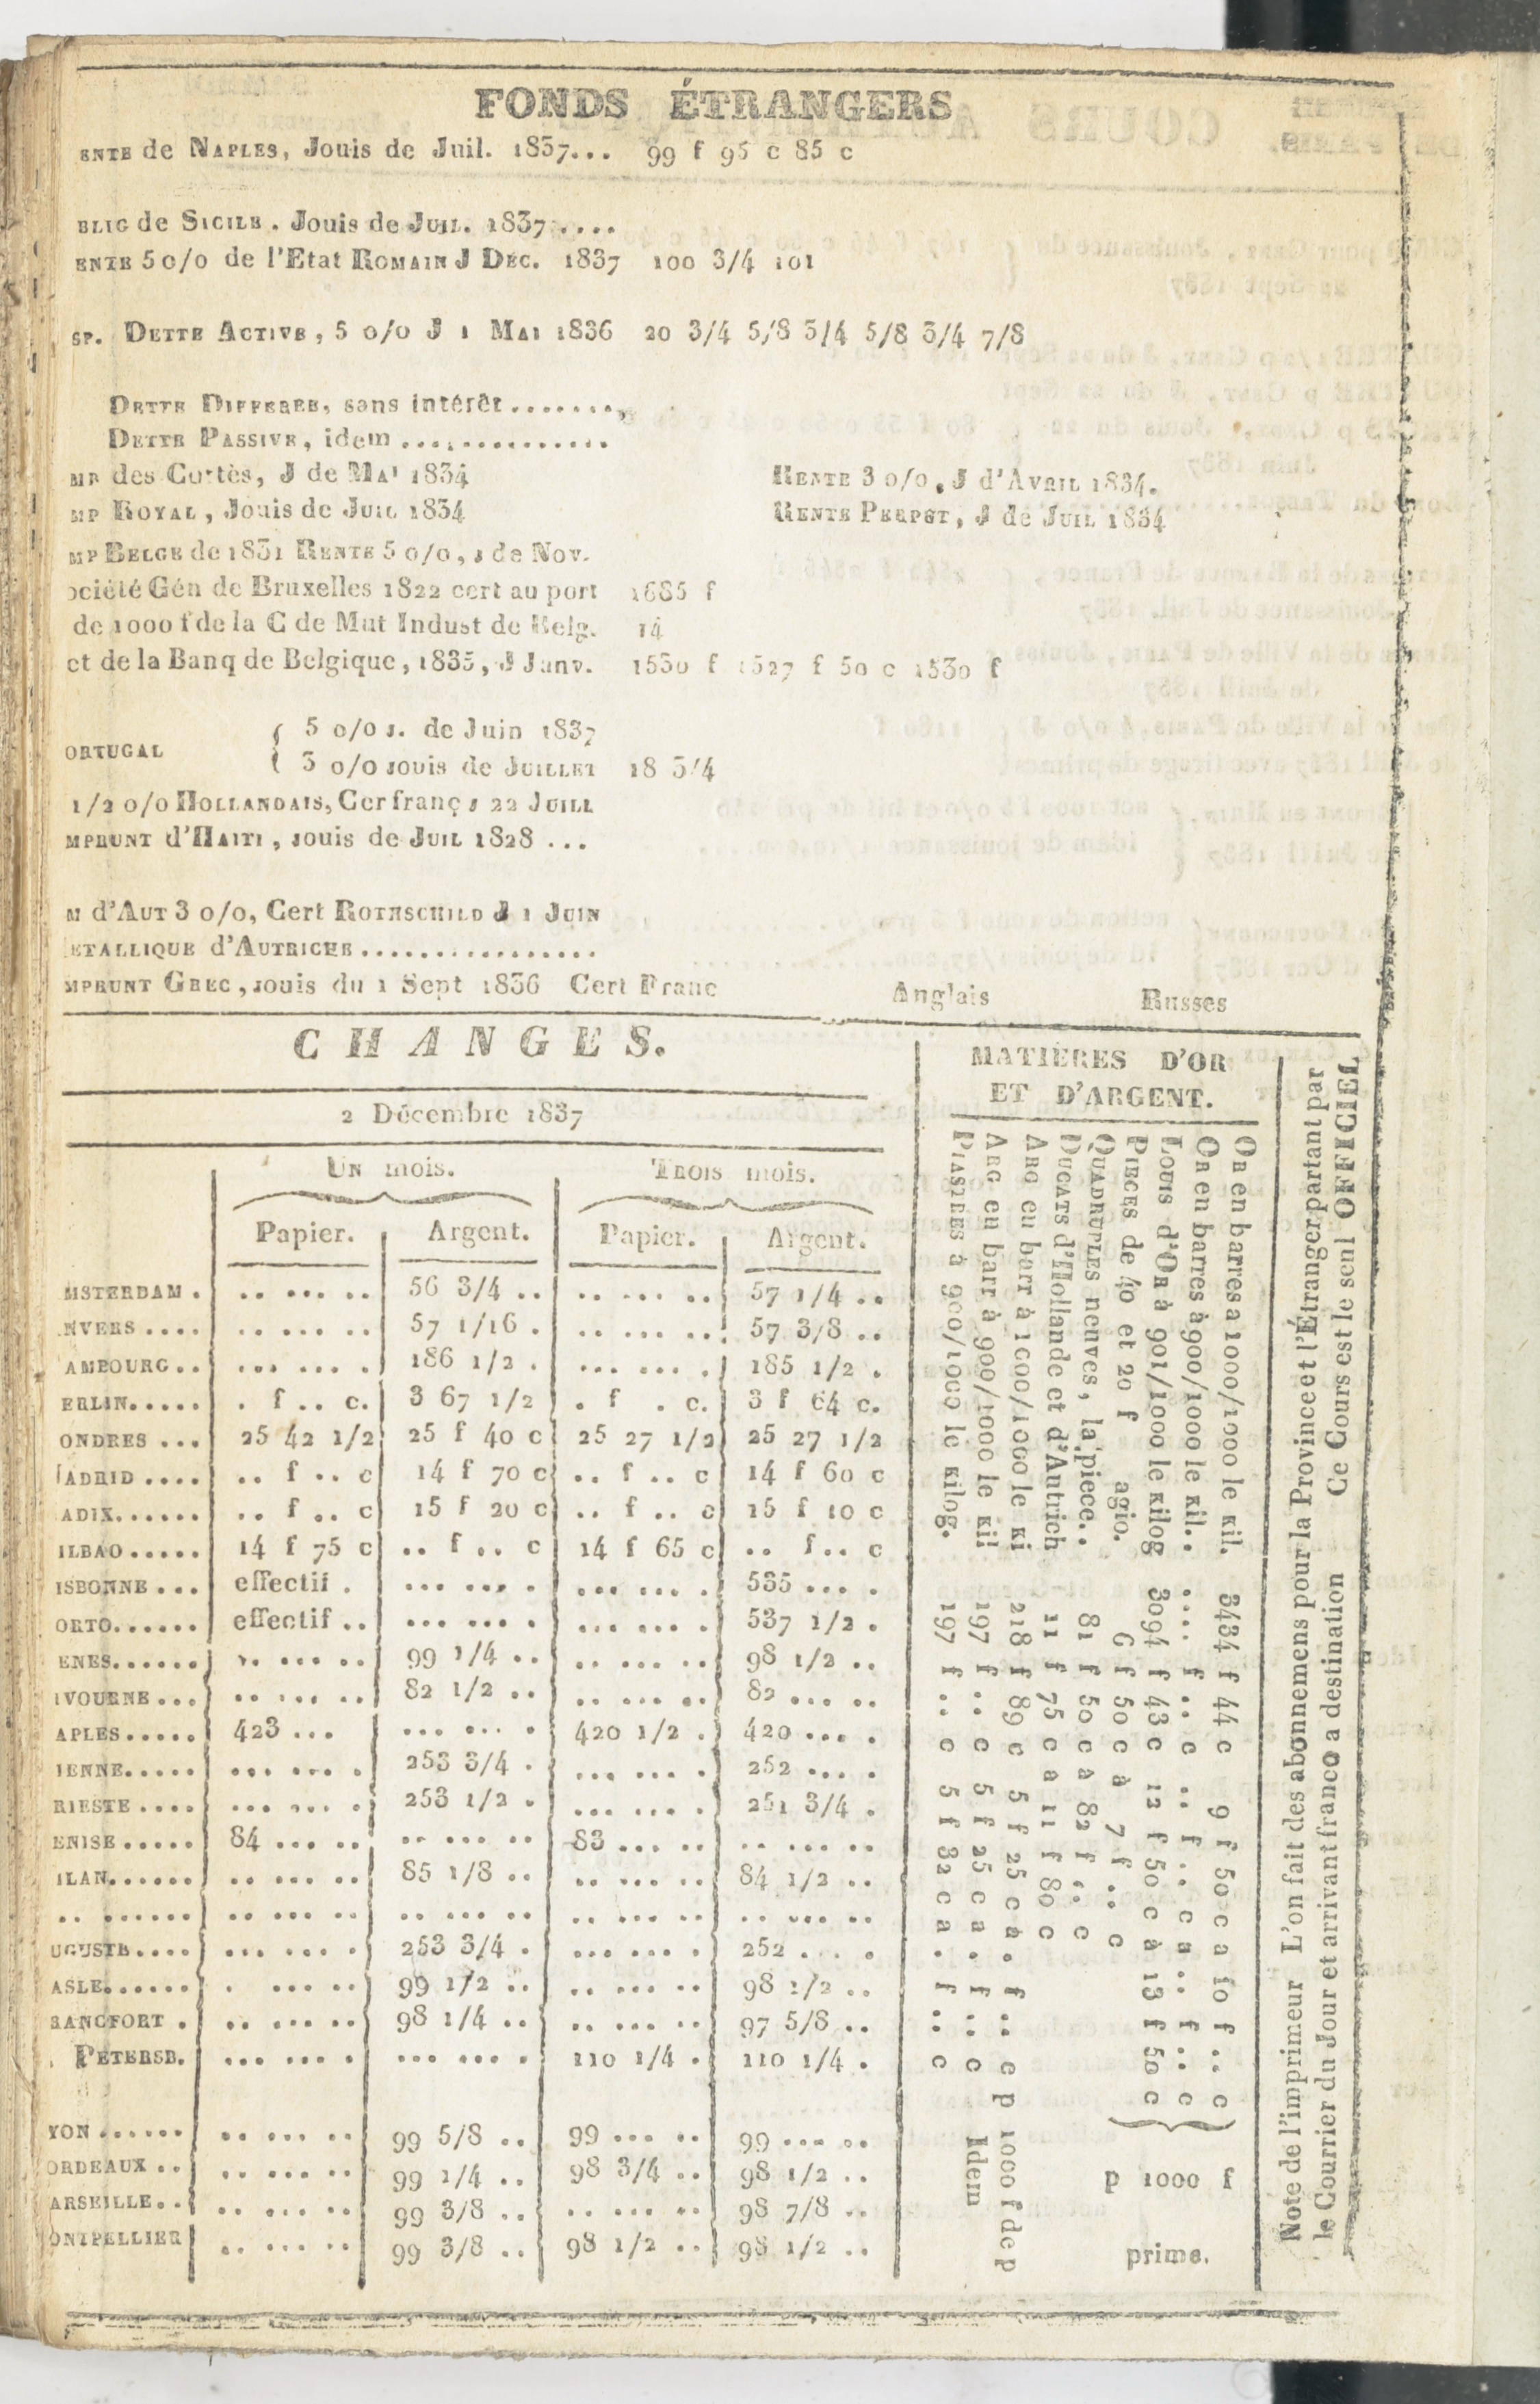 FONDS ÉTRANGERS
ENTE de NAPLES, Jouis de Juil. 1837... 99 f 95 c 85 c
BLIG de SICILE. Jouis de JUIL. 1837....
ENTE 5 0/0 de l'Etat ROMAIN J DEC. 1837 100 3/4 101
SP. DETTE ACTIVE, 5 0/0 J 1 MAI 1836 20 3/4 5/8 3/4 5/8 3/4 7/8
DETTE DIFFEREE, sans intérêt .......,
DETTE PASSIVE, idem ..............
MP des Cortès, J de MAI 1834 RENTE 3 0/0, J d'AVRIL 1834.
MP ROYAL, Jouis de JUIL 1834 RENTE PERPET, J de JUIL 1834
MP BELGE de 1831 RENTE 5 0/0, J de Nov.
ociété Gén de Bruxelles 1822 cert au port 1685 f
de 1000 f de la C de Mut Indust de Belg. 14
et de la Banq de Belgique, 1835, J Janv. 1530 f 1527 f 50 c 1530 f
ORTUGAL { 5 0/0 J. de Juin 1837
{ 3 0/0 Jouis de JUILLET 18 3/4
1/2 0/0 HOLLANDAIS, Cer franç J 22 JUILL
MPRUNT d'HAITI, Jouis de JUIL 1828 ...
M d'AUT 3 0/0, Cert ROTHSCHILD J 1 JUIN
ETALLIQUE d'AUTRICHE ................
MPRUNT GREC, Jouis du 1 Sept 1836 Cert Franc Anglais Russes
CHANGES.
2 Décembre 1837
UN mois. TROIS mois.
Papier. Argent. Papier. Argent.
MSTERDAM . .. ... .. 56 3/4 .. .. ... .. 57 1/4 ..
NVERS .... .. ... .. 57 1/16 . .. ... .. 57 3/8 ..
AMBOURG .. ... ... . 186 1/2 . ... ... . 185 1/2 .
ERLIN..... . f .. c. 3 67 1/2 . f . c. 3 f 64 c.
ONDRES ... 25 42 1/2 25 f 40 c 25 27 1/2 25 27 1/2
ADRID .... .. f .. c 14 f 70 c .. f .. c 14 f 60 c
ADIX...... .. f .. c 15 f 20 c .. f .. c 15 f 10 c
ILBAO ..... 14 f 75 c .. f .. c 14 f 65 c .. f .. c
ISBONNE ... effectif . ... ... . ... ... . 535 ... .
ORTO...... effectif .. ... ... . ... ... . 537 1/2 .
ENES...... .. ... .. 99 1/4 .. .. ... .. 98 1/2 ..
IVOURNE ... .. ... .. 82 1/2 .. .. ... .. 82 ... ..
APLES ..... 423 ... ... ... . 420 1/2 . 420 ... .
IENNE..... ... ... . 253 3/4 . ... ... . 252 ... .
RIESTE .... ... ... . 253 1/2 . ... ... . 251 3/4 .
ENISE ..... 84 ... .. .. ... .. 83 ... .. .. ... ..
ILAN...... .. ... .. 85 1/8 .. .. ... .. 84 1/2 ..
.. ...... .. ... .. .. ... .. .. ... .. .. ... ..
UGUSTE.... ... ... . 253 3/4 . ... ... . 252 ... .
ASLE...... . ... .. 99 1/2 .. .. ... .. 98 1/2 ..
RANCFORT . .. ... .. 98 1/4 .. .. ... .. 97 5/8 ..
PETERSB. ... ... . ... ... . 110 1/4 . 110 1/4 .
YON ...... .. ... .. 99 5/8 .. 99 ... .. 99 ... ..
ORDEAUX .. .. ... .. 99 1/4 .. 98 3/4 .. 98 1/2 ..
ARSEILLE.. .. ... .. 99 3/8 .. .. ... .. 98 7/8 ..
ONTPELLIER .. ... .. 99 3/8 .. 98 1/2 .. 98 1/2 ..
MATIÈRES D'OR
ET D'ARGENT.
OR en barres a 1000/1000 le Kil. 3434 f 44 c 9 f 50 c a 10 f .. c
OR en barres à 900/1000 le Kil. . .... f .. c .. f .. c a .. f .. c
LOUIS d'OR à 901/1000 le Kilog 3094 f 43 c 12 f 50 c à 13 f 50 c
} p 1000 f
prime.
PIECES de 40 et 20 f agio. 6 f 50 c à 7 f .. c
QUADRUPLES neuves, la piece. . 81 f 50 c a 82 f .. c
DUCATS d'Hollande et d'Autrich 11 f 75 c a 11 f 80 c
ARG en barr à 1000/1000 le Ki 218 f 89 c 5 f 25 c à . f .. c p 1000 f de p
ARG en barr à 900/1000 le Kil 197 f .. c 5 f 25 c a . f .. c Idem
PIASTRES à 900/1000 le Kilog. 197 f .. c 5 f 32 c a . f .. c
Ce Cours est le seul OFFICIEL
Note de l'imprimeur L'on fait des abonnemens pour la Province et l'Étranger partant par
le Courrier du Jour et arrivant franco a destination